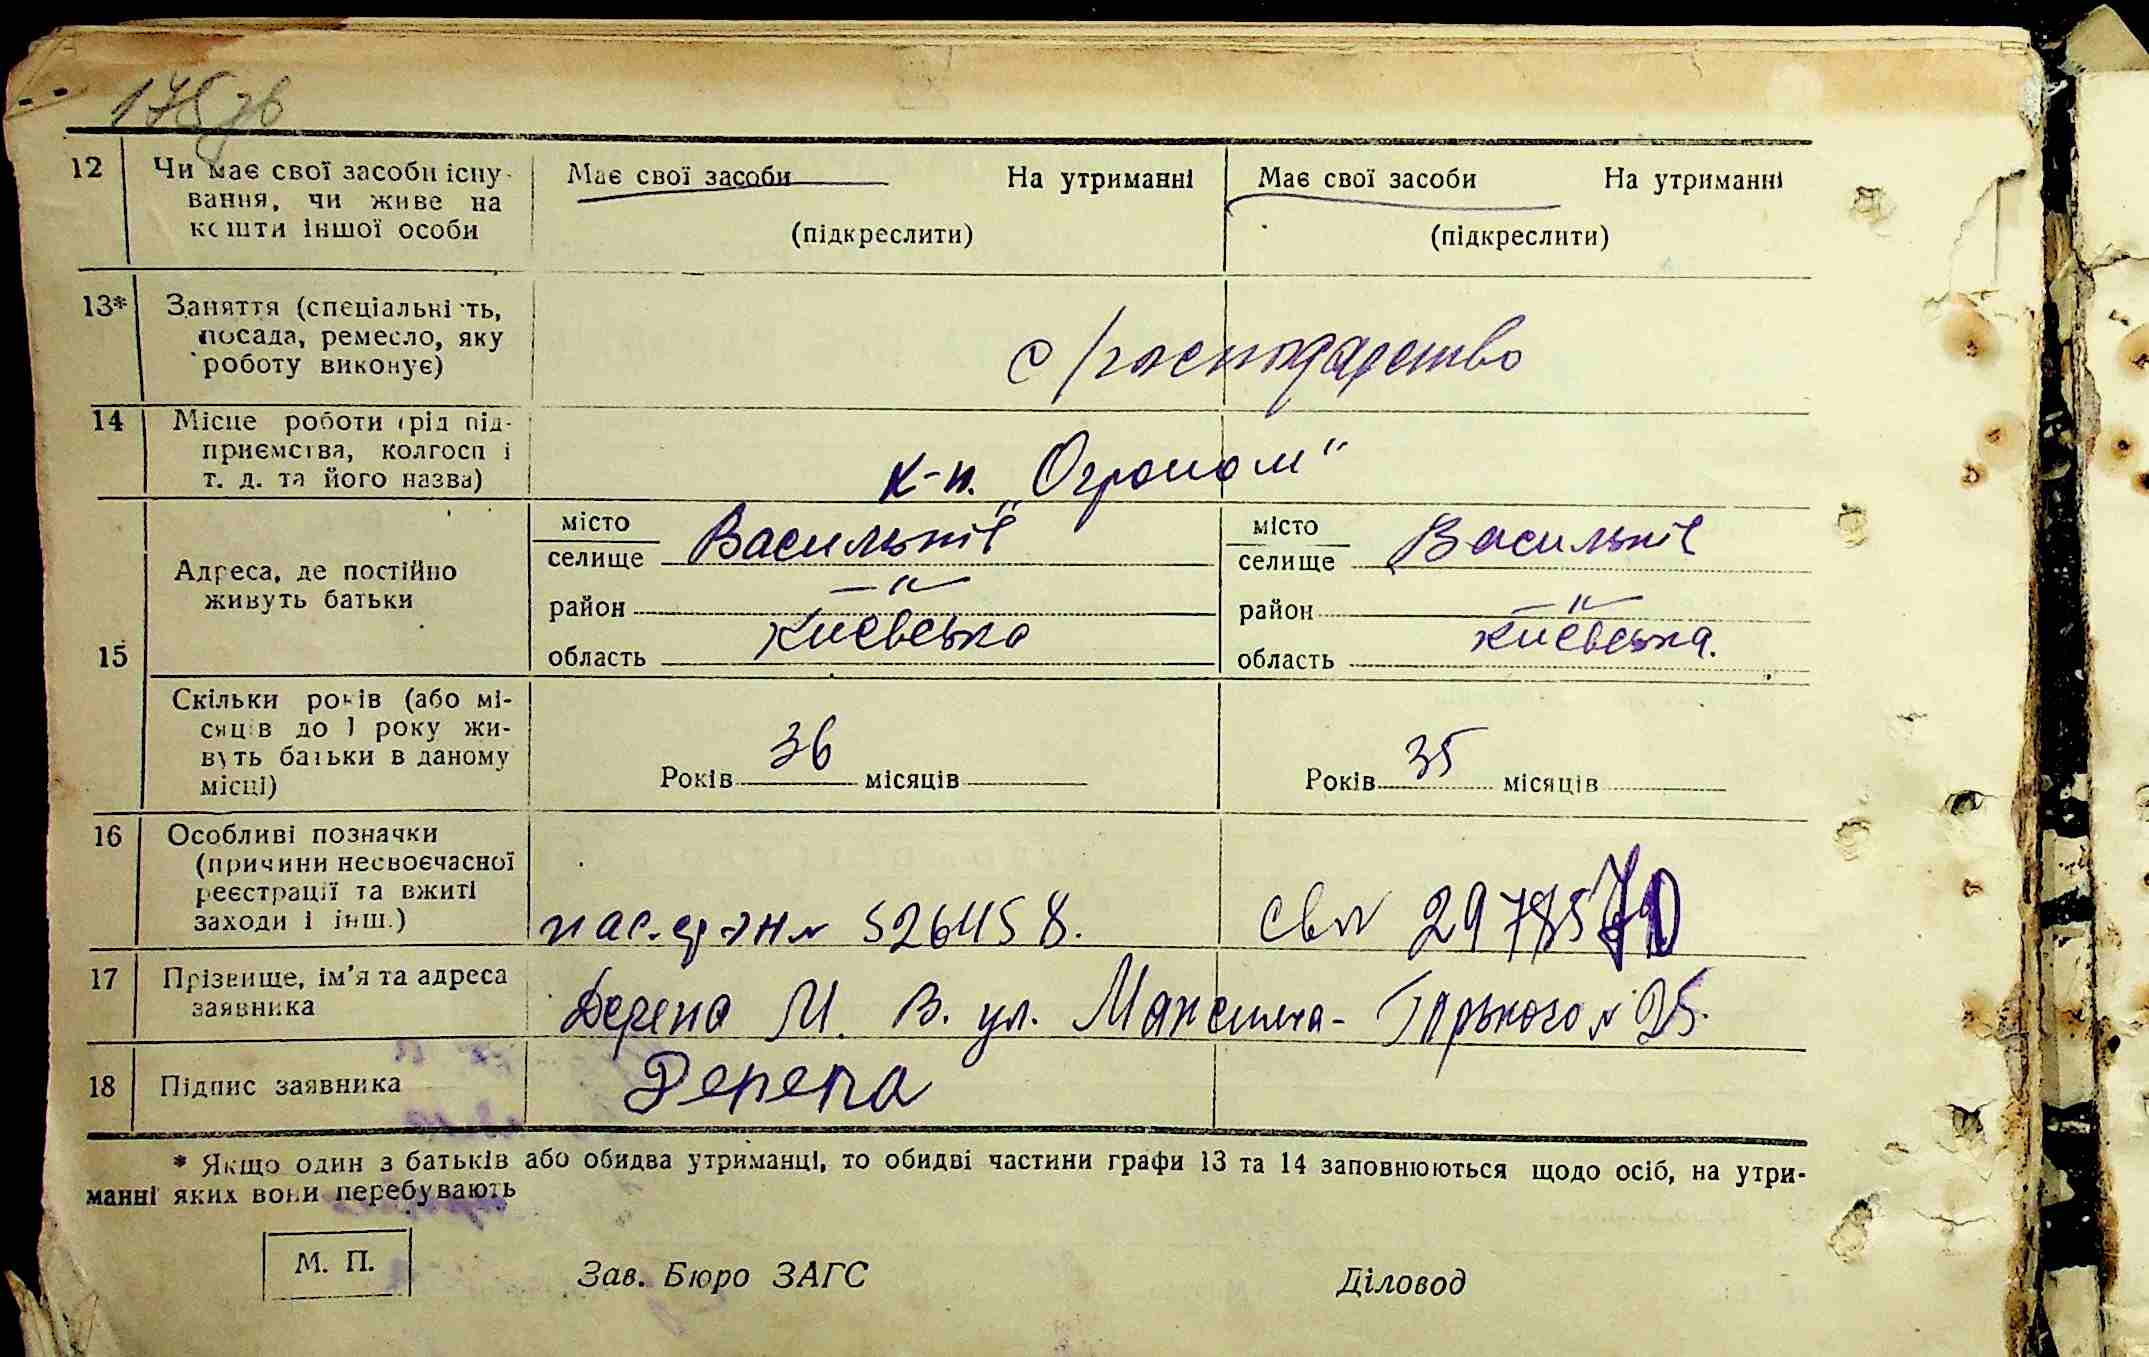 175 зв
12 Чи має свої засоби існу- Має свої засоби На утриманні Має свої засоби На утриманні
вання, чи живе на
кошти іншої особи (підкреслити) (підкреслити)
13* Заняття (спеціальність,
посада, ремесло, яку с/господарство
роботу виконує)
14 Місце роботи (рід під-
приємства, колгосп і
т. д. та його назва) к-п. „Огроном"
15 Адреса, де постійно
живуть батьки
місто
селище Васильків
район —"—
область Київська
місто
селище Васильків
район —"—
область Київська.
Скільки років (або мі-
сяців до 1 року жи-
вуть батьки в даному
місці)
Років 36 місяців
Років 35 місяців
16 Особливі позначки
(причини несвоєчасної
реєстрації та вжиті
заходи і інш.) № 526458.
17 Прізвище, ім'я та адреса
заявника Дерепа М. В. ул. Максима-Горького № 25.
18 Підпис заявника Дерепа
* Якщо один з батьків або обидва утриманці, то обидві частини графи 13 та 14 заповнюються щодо осіб, на утри-
манні яких вони перебувають
М. П. Зав. Бюро ЗАГС Діловод